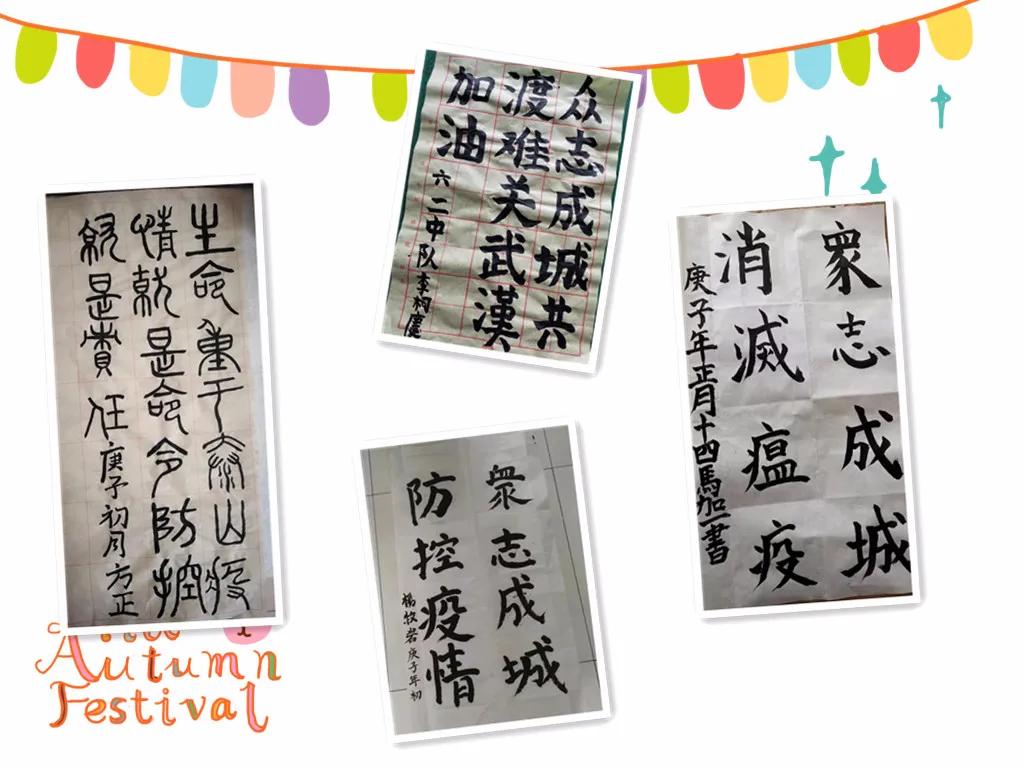 生命重于泰山疫
情就是命令防控
就是責任
庚子初月方正
众志成城共
渡难关武漢
加油
六二中队李柯慶
衆志成城
防控疫情
楊牧岩庚子年初
衆志成城
消滅瘟疫
庚子年正月十四馬加一書
Autumn
Festival